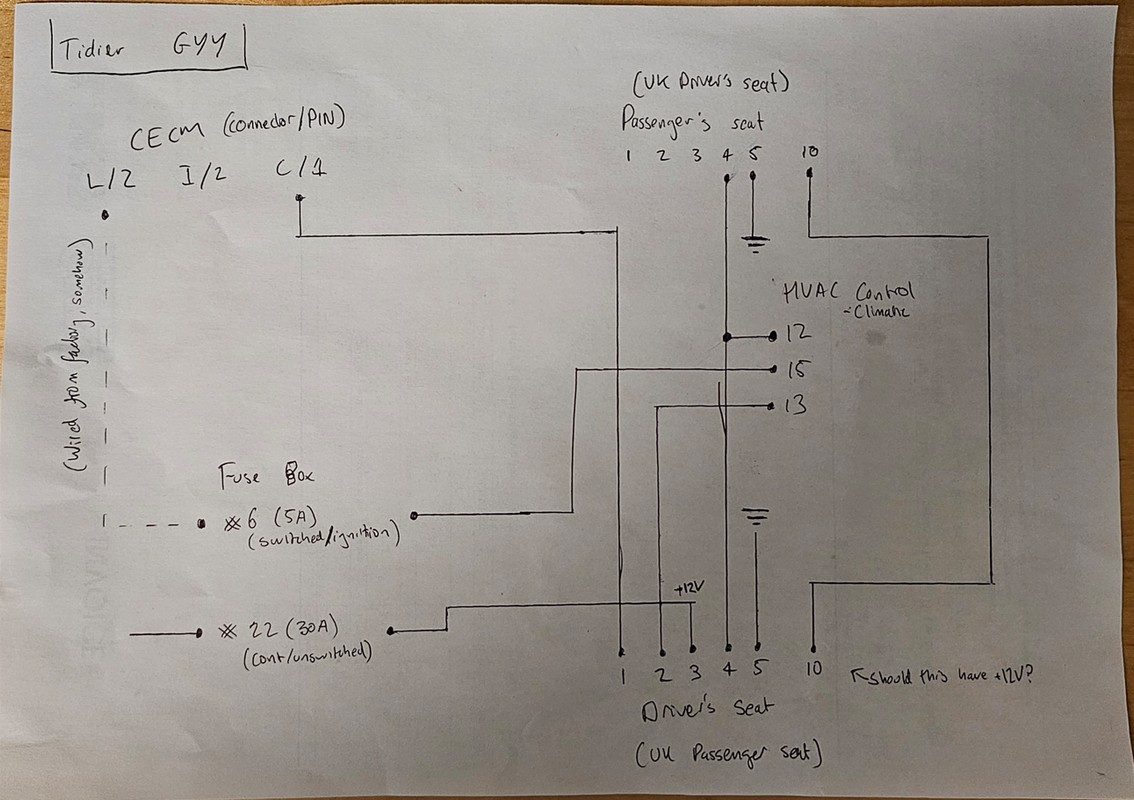 Tidier GYY
CECM (connector/PIN)
L/2 I/2 C/1
(Wired from factory, somehow)
(UK Driver's seat)
Passenger's seat
1 2 3 4 5 10
HVAC Control
-Climatic
12
15
13
Fuse Box
※6 (5A)
(switched/ignition)
※ 22 (30A)
(cont/unswitched)
+12V
1 2 3 4 5 10
↖Should this have +12V?
Driver's Seat
(UK Passenger seat)